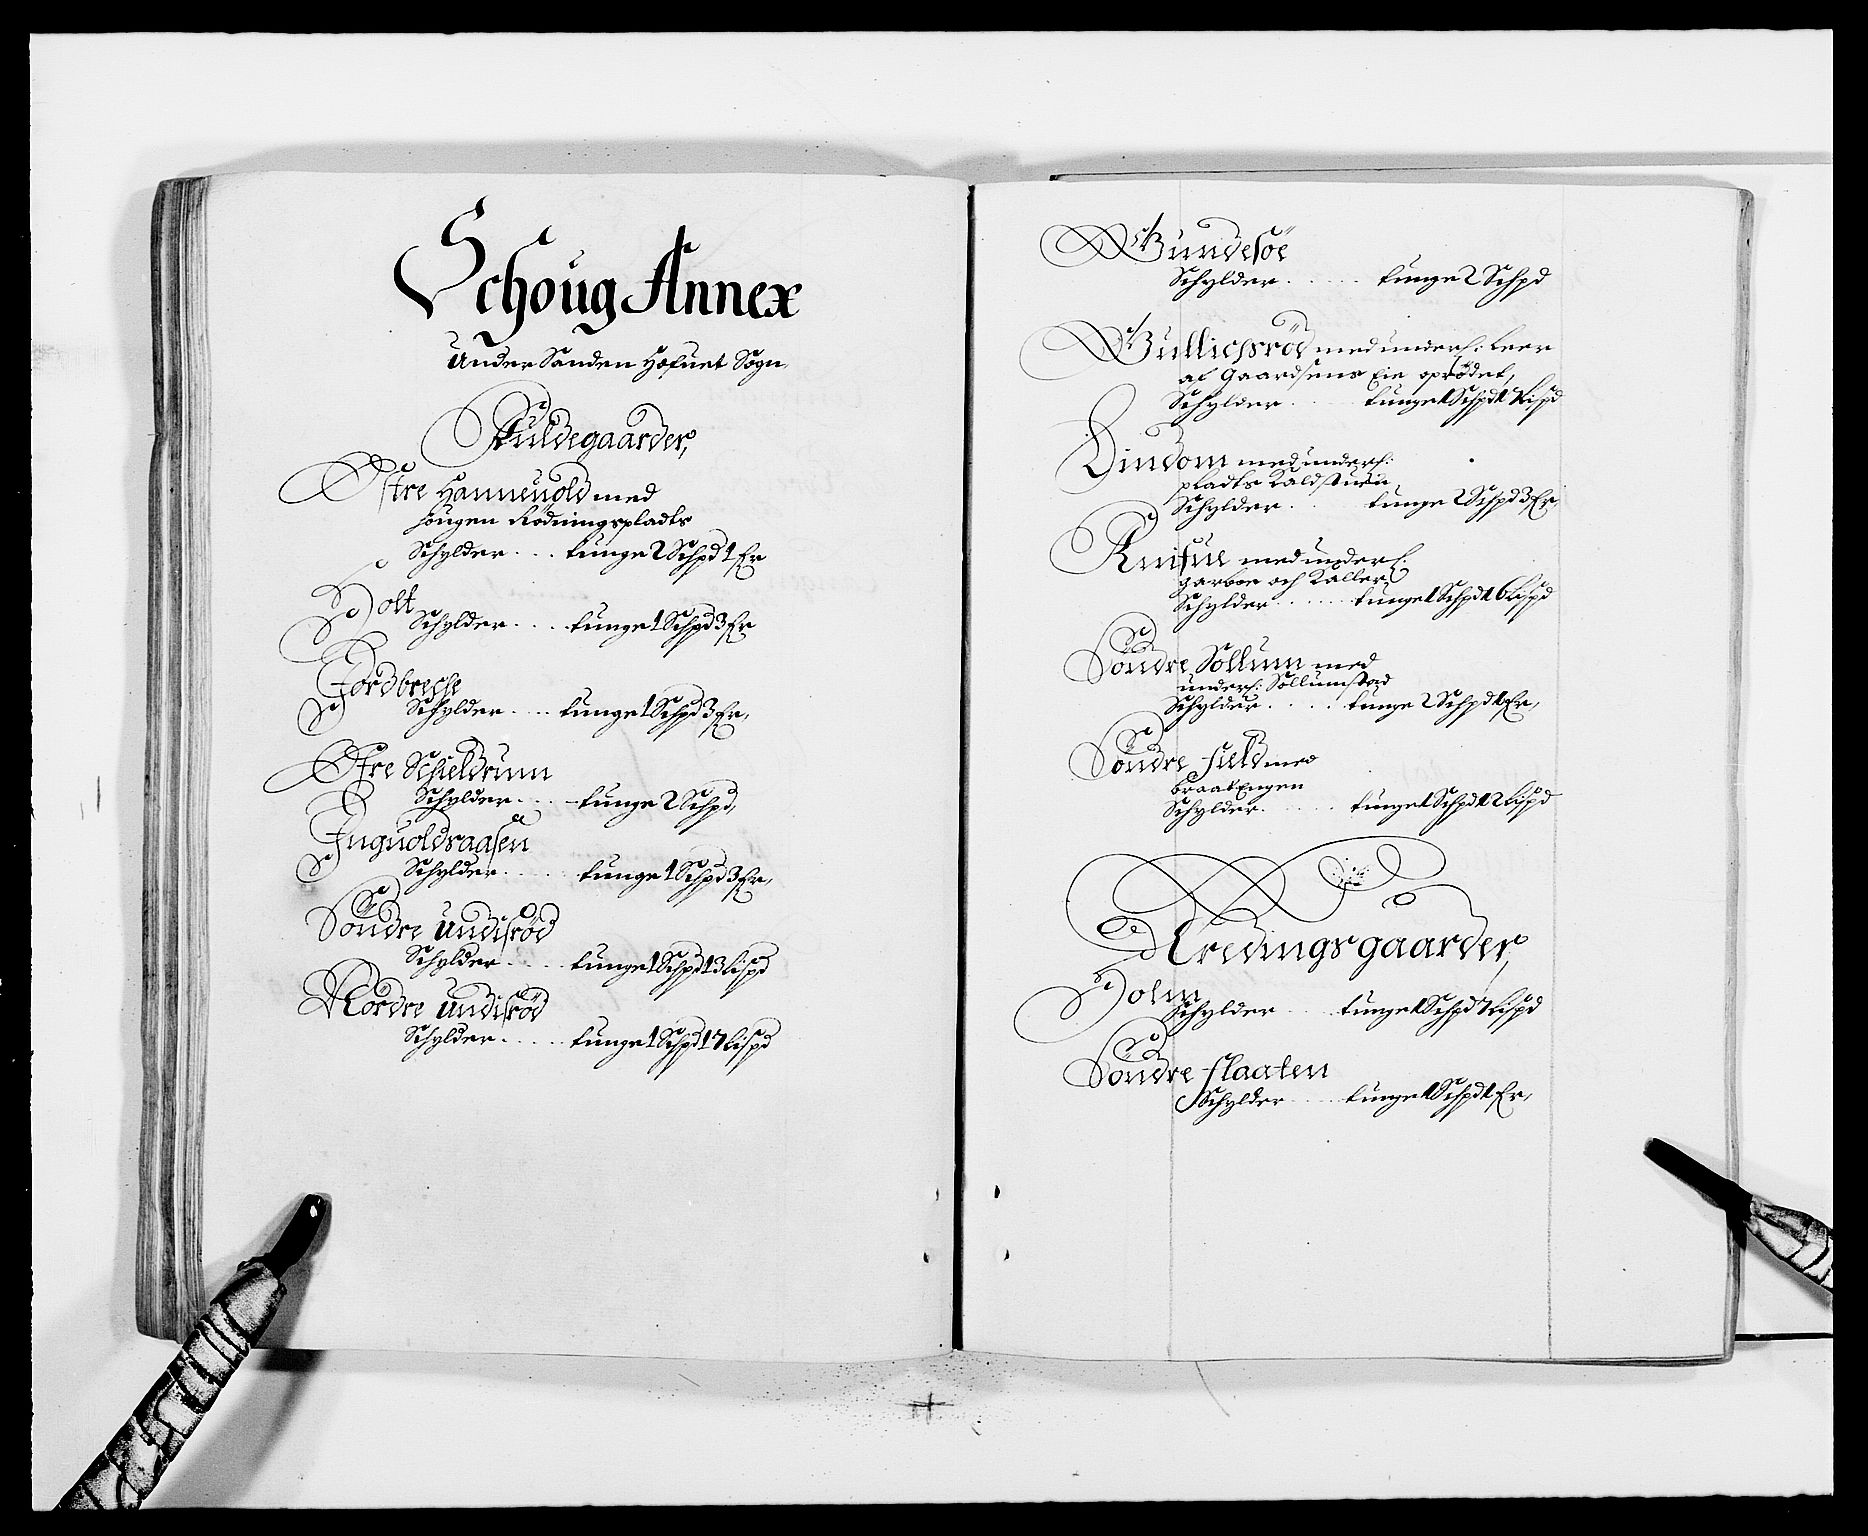 Schoug Annex
Under Sanden Hofuet Sogn.
Fuldegaarder,
Østre Hanneuold med
Hougen Rödningspladts
Schylder . . . tunge 2 Schpd 1 Fr
Holt
Schylder . . . . tunge 1 Schpd 3 Fr
Jordbreche
Schylder . . . . tunge 1 Schpd 3 Fr,
Øfre Schieldrum
Schylder . . . . tunge 2 Schpd,
Inguoldsraasen
Schylder . . . . . tunge 1 Schpd 3 Fr,
Söndre Undisröd
Schylder . . . . . tunge 1 Schpd 13 Lispd
Nordre Undisröd
Schylder . . . . . tunge 1 Schpd 17 Lispd
Gundesöe
Schylder . . . . . tunge 2 Schpd
Gullichsröd med underl: Leer
af Gaardsens Eie oprödet,
Schylder . . . . tunge 1 Schpd 17 Lispd
Lindom med underl:
pladts Kaldstuen
Schylder . . . tunge 2 Schpd 3 Fr,
Knifue med underl:
garboe och Kallerö
Schylder . . . . . . tunge 1 Schpd 16 Lispd
Söndre Sollum med
underl: Sollumstad
Schylder . . . . . tunge 2 Schpd 1 Fr,
Söndre field med
braatEngen
Schylder . . . . . tunge 1 Schpd 12 Lispd
Øredingsgaarder,
Holm
Schylder . . . . tunge 1 Schpd 7 Lispd
Söndre flaaten
Schylder . . . . tunge 1 Schpd 1 Fr,